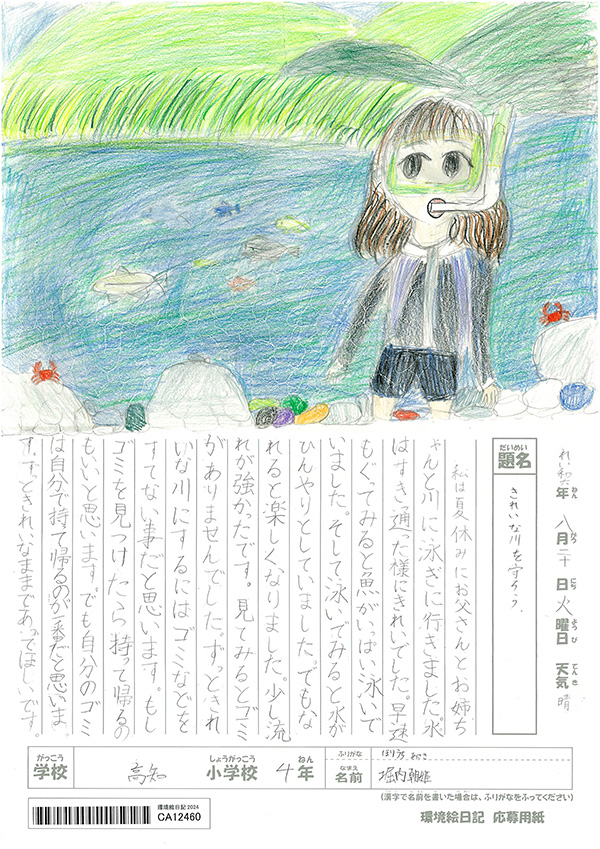 れい和六年 八月二十日 火曜日 天気 晴
ねん がつ にち ようび てんき
だいめい
題名
きれいな川を守ろう。
私は夏休みにお父さんとお姉ち
ゃんと川に泳ぎに行きました。水
はすき通った様にきれいでした。早速
もぐてみると魚がいっぱい泳いで
いました。そして泳いでみると水が
ひんやりとしていました。でもな
れると楽しくなりました。少し流
れが強かたです。見てみるとゴミ
がありませんでした。ずっときれ
いな川にするにはゴミなどを
すてない事だと思います。もし
ゴミを見つけたら持って帰るの
もいいと思います。でも自分のゴミ
は自分で持て帰るのが一番だと思いま
す。ずっときれいなままであってほしいです。
がっこう
学校
高知
しょうがっこう
小学校
4
ねん
年
ふりがな
ほりうち
なまえ
名前
堀内
(漢字で名前を書いた場合は、ふりがなをふってください)
環境絵日記2024
CA12460
環境絵日記 応募用紙